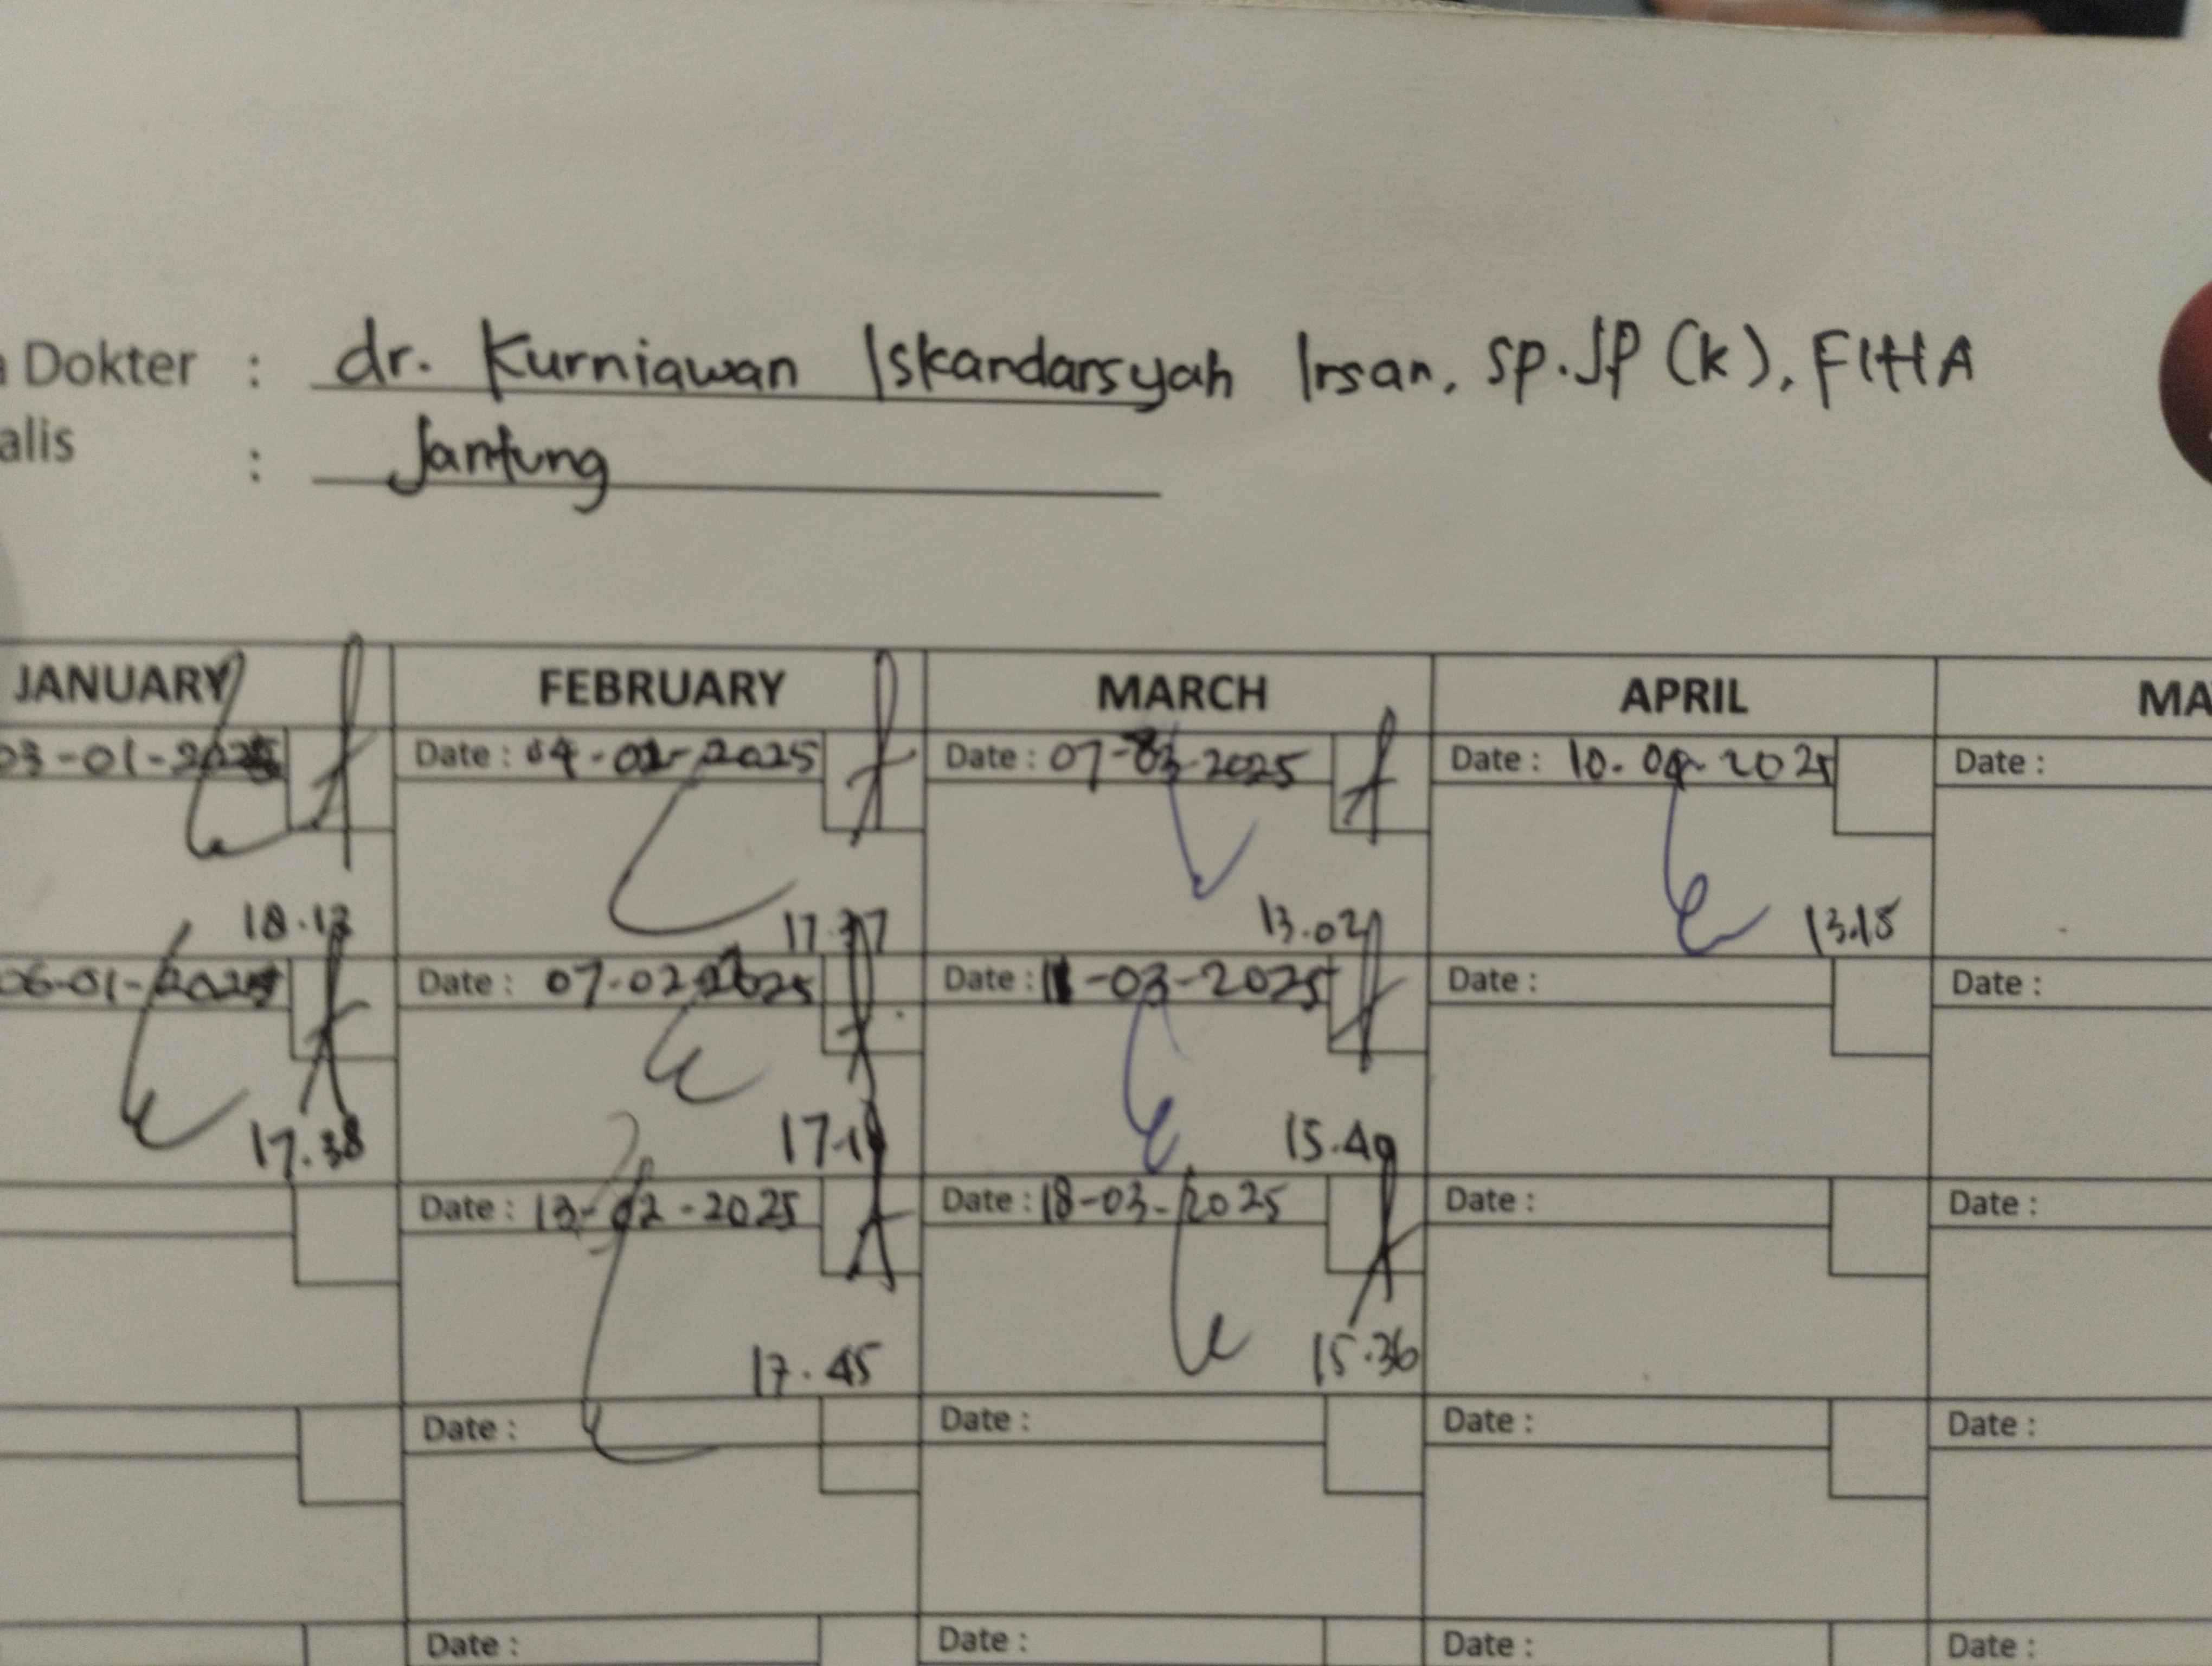 Dokter : dr. Kurniawan Iskandarsyah Irsan, Sp.JP (K), FIHA
alis : Jantung
JANUARY FEBRUARY MARCH APRIL MA
03-01-2025 Date : 04-02-2025 Date : 07-03-2025 Date : 10.04-2025 Date :
18.12 17.37 13.02 13.15
06-01-2025 Date : 07-02-2025 Date : 11-03-2025 Date : Date :
17.38 15.49
Date : 13-02-2025 Date : 18-03-2025 Date : Date :
17.45 15.36
Date : Date : Date : Date :
Date : Date : Date : Date :